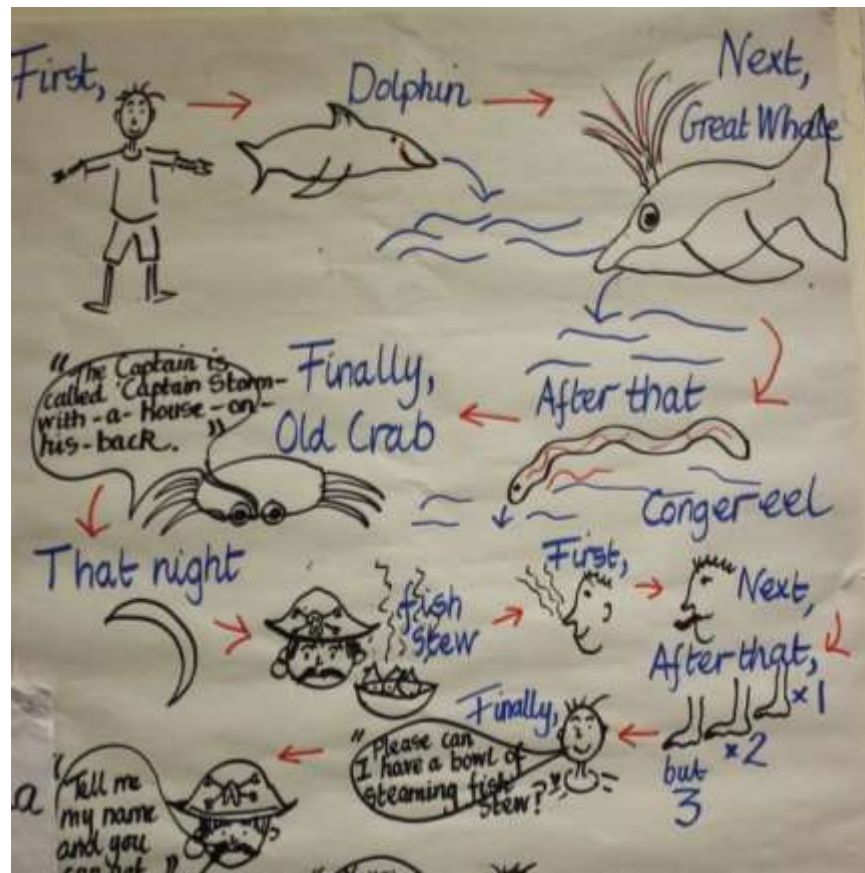 First,
Dolphin
Next,
Great Whale
After that
Conger eel
Finally,
Old Crab
"The Captain is
called 'Captain Storm-
with-a-House-on-
his-back.
"
That night
fish
stew
First,
Next,
After that,
x1
x2
but
3
Finally,
"Please can
I have a bowl of
steaming fish
stew?"
a
"Tell me
my name
and you
can get
"